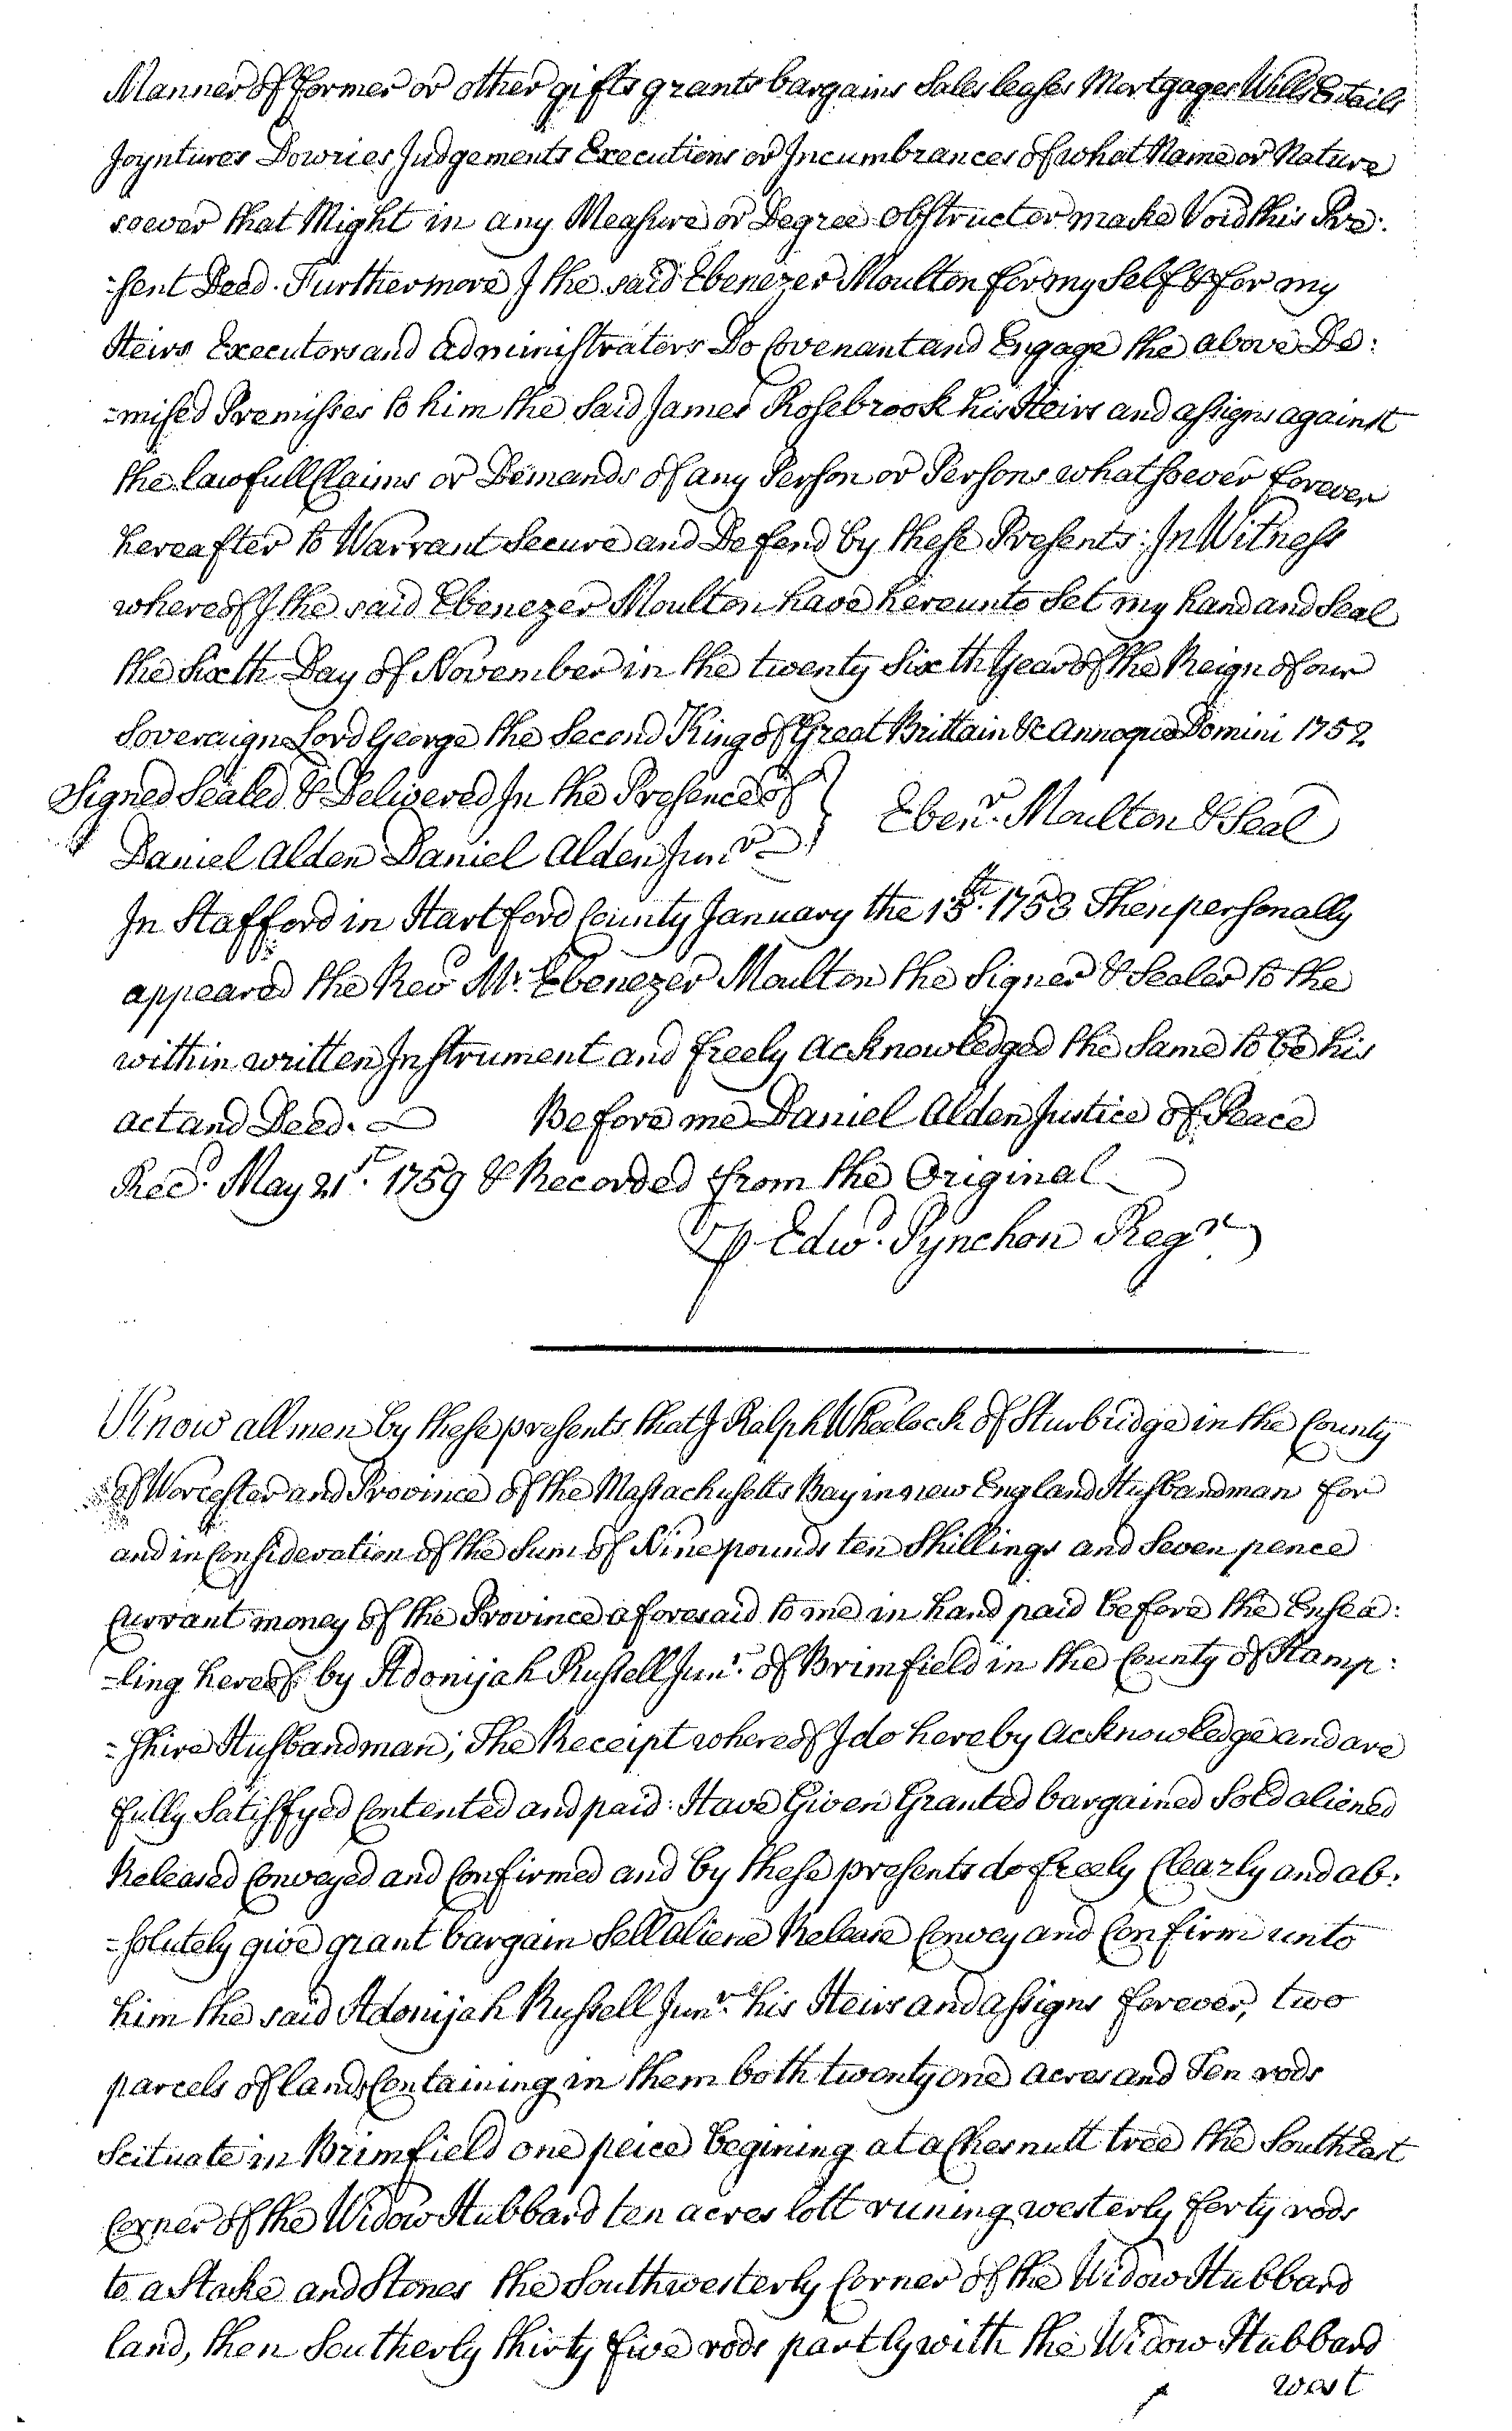 Manner of former or other gifts grants bargains Sales leases Mortgages Wills Entails
Joyntures Dowries Judgements Executions or Incumbrances of what Name or Nature
soever that Might in any Measure or Degree obstruct or make Void this Pre:
-sent Deed. Furthermore I the said Ebenezer Moulton for my Self & for my
Heirs Executors and administrators Do Covenant and Engage the above De:
-mised Premisses to him the Said James Rosebrook his Heirs and assigns against
the lawfull Claims or Demands of any Person or Persons whatsoever forever
hereafter to Warrant Secure and Defend by these Presents: In Witness
whereof I the said Ebenezer Moulton have hereunto Set my hand and Seal
the Sixth Day of November in the twenty Sixth Year of the Reign of our
Soveraign Lord George the Second King of Great Brittain &c annoque Domini 1752
Signed Sealed & Delivered In the Presence of
Daniel Alden Daniel Alden Junr
Ebenr. Moulton & Seal
In Stafford in Hartford County January the 15th. 1753 Then personally
appeared the Revd Mr. Ebenezer Moulton the Signer & Sealer to the
within written Instrument and freely acknowledged the Same to be his
act and Deed. Before me Daniel Alden Justice of Peace
Recd. May 21st. 1759 & Recorded from the Original
P Edwd. Pynchon Regr
Know all men by these presents that I Ralph Wheelock of Sturbridge in the County
of Worcester and Province of the Massachusetts Bay in new England Husbandman for
and in Consideration of the Sum of Nine pounds ten Shillings and Seven pence
Currant money of the Province aforesaid to me in hand paid before the Ensea:
-ling hereof by Adonijah Russell Junr. of Brimfield in the County of Hamp:
-shire Husbandman; The Receipt whereof I do hereby acknowledge and are
fully Satisfyed Contented and paid: Have Given Granted bargained Sold aliened
Released Conveyed and Confirmed and by these presents do freely Clearly and ab:
-solutely give grant bargain Sell aliene Release Convey and Confirm unto
him the said Adonijah Russell Junr. his Heirs and assigns forever, two
parcels of lands Containing in them both twenty one acres and Ten rods
Scituate in Brimfield one peice begining at a Chesnutt tree the South East
Corner of the Widow Hubbard ten acres lott runing westerly forty rods
to a Stake and Stones the Southwesterly Corner of the Widow Hubbard
land, then Southerly thirty five rods partly with the Widow Hubbard
west